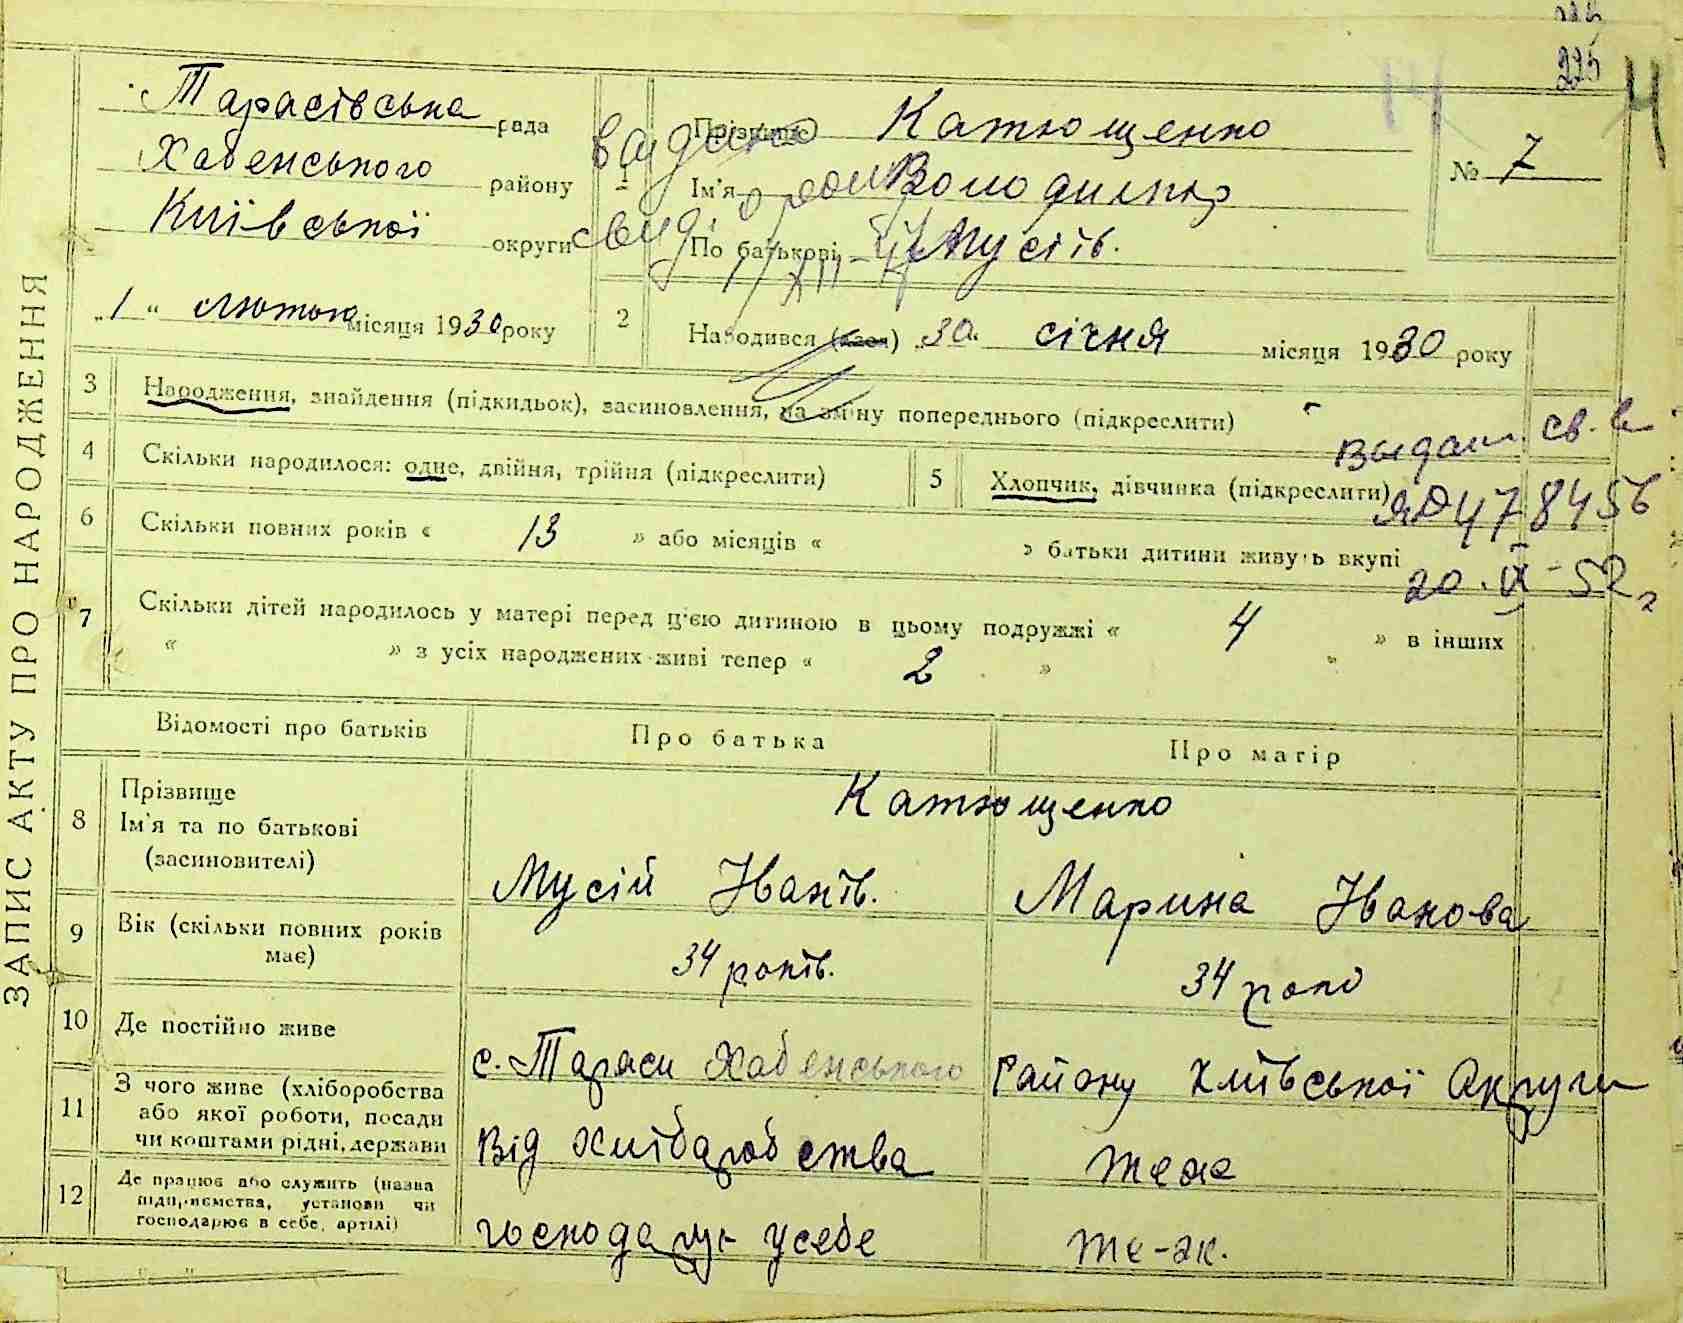 225
4
ЗАПИС АКТУ ПРО НАРОДЖЕННЯ
Тарасівська рада
Хабенського району
Київської округи
„1“ лютого місяця 1930 року
1 Прізвище Катющенко
Ім'я Володимир
По батькові Мусіїв.
№ 7
видано
свид.
2 Народився (лася) „30“ січня місяця 1930 року
3 Народження, знайдення (підкидьок), засиновлення, на зміну попереднього (підкреслити)
4 Скільки народилося: одне, двійня, трійня (підкреслити)
5 Хлопчик, дівчинка (підкреслити)
Выдан. св. в
ЯД 478456
20. IX - 52 г
6 Скільки повних років « 13 » або місяців « » батьки дитини живуть вкупі
7 Скільки дітей народилось у матері перед ц'єю дитиною в цьому подружжі « 4 » в інших
« » з усіх народжених живі тепер « 2 »
Відомості про батьків
Про батька
Про матір
8 Прізвище
Ім'я та по батькові
(засиновителі)
Катющенко
Мусій Іванів.
Марина Іванова
9 Вік (скільки повних років
має)
34 років.
34 роко
10 Де постійно живе
с. Тараси Хабенського Району Київської Округи
11 З чого живе (хліборобства
або якої роботи, посади
чи коштами рідні, держави
Від хлібаробства
теже
12 Де працює або служить (назва
підприємства, установи чи
господарює в себе, артілі)
господарує усебе
те-ж.